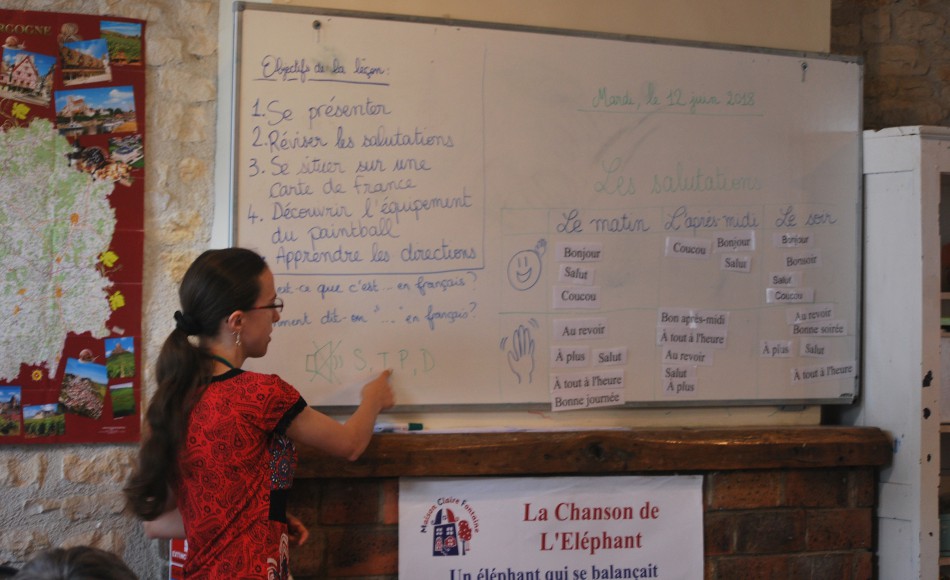 RGOGNE
Objectifs de la leçon:
1. Se présenter
2. Réviser les salutations
3. Se situer sur une
carte de France
4. Découvrir l'équipement
du paintball
Apprendre les directions
est-ce que c'est ... en français?
ment dit-on "..." en français?
S, T, P, D
Mardi, le 12 juin 2018
Les salutations
Le matin L'après-midi Le soir
Bonjour
Salut
Coucou
Coucou Bonjour
Salut
Bonjour
Bonsoir
Salut
Coucou
Au revoir
À plus Salut
À tout à l'heure
Bonne journée
Bon après-midi
À tout à l'heure
Au revoir
Salut
À plus
Au revoir
Bonne soirée
À plus Salut
À tout à l'heure
Maison Claire Fontaine
La Chanson de
L'Eléphant
Un éléphant qui se balançait